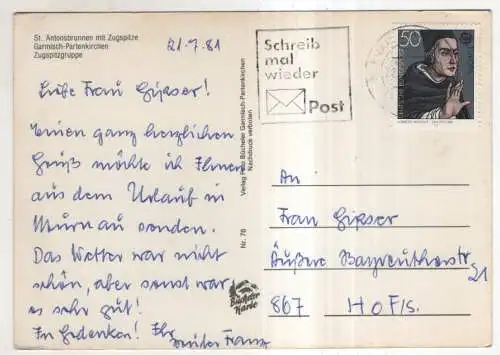 St. Antonsbrunnen mit Zugspitze
Garmisch-Partenkirchen
Zugspitzgruppe
21.7.81
Liebe Frau Gipser!
Einen ganz herzlichen
Gruß möchte ich Ihnen
aus dem Urlaub in
Murnau senden.
Das Wetter war nicht
schön, aber sonst war
es sehr gut!
In Gedenken! Ihr
Bruder Franz
Verlag Foto Bücheler Garmisch-Partenkirchen
Nachdruck verboten
Nr. 78
Bücheler
Karte
Schreib
mal
wieder
Post
50
An
Frau Gipser
Äußere Bayreutherstr
21
867 Hof/S.